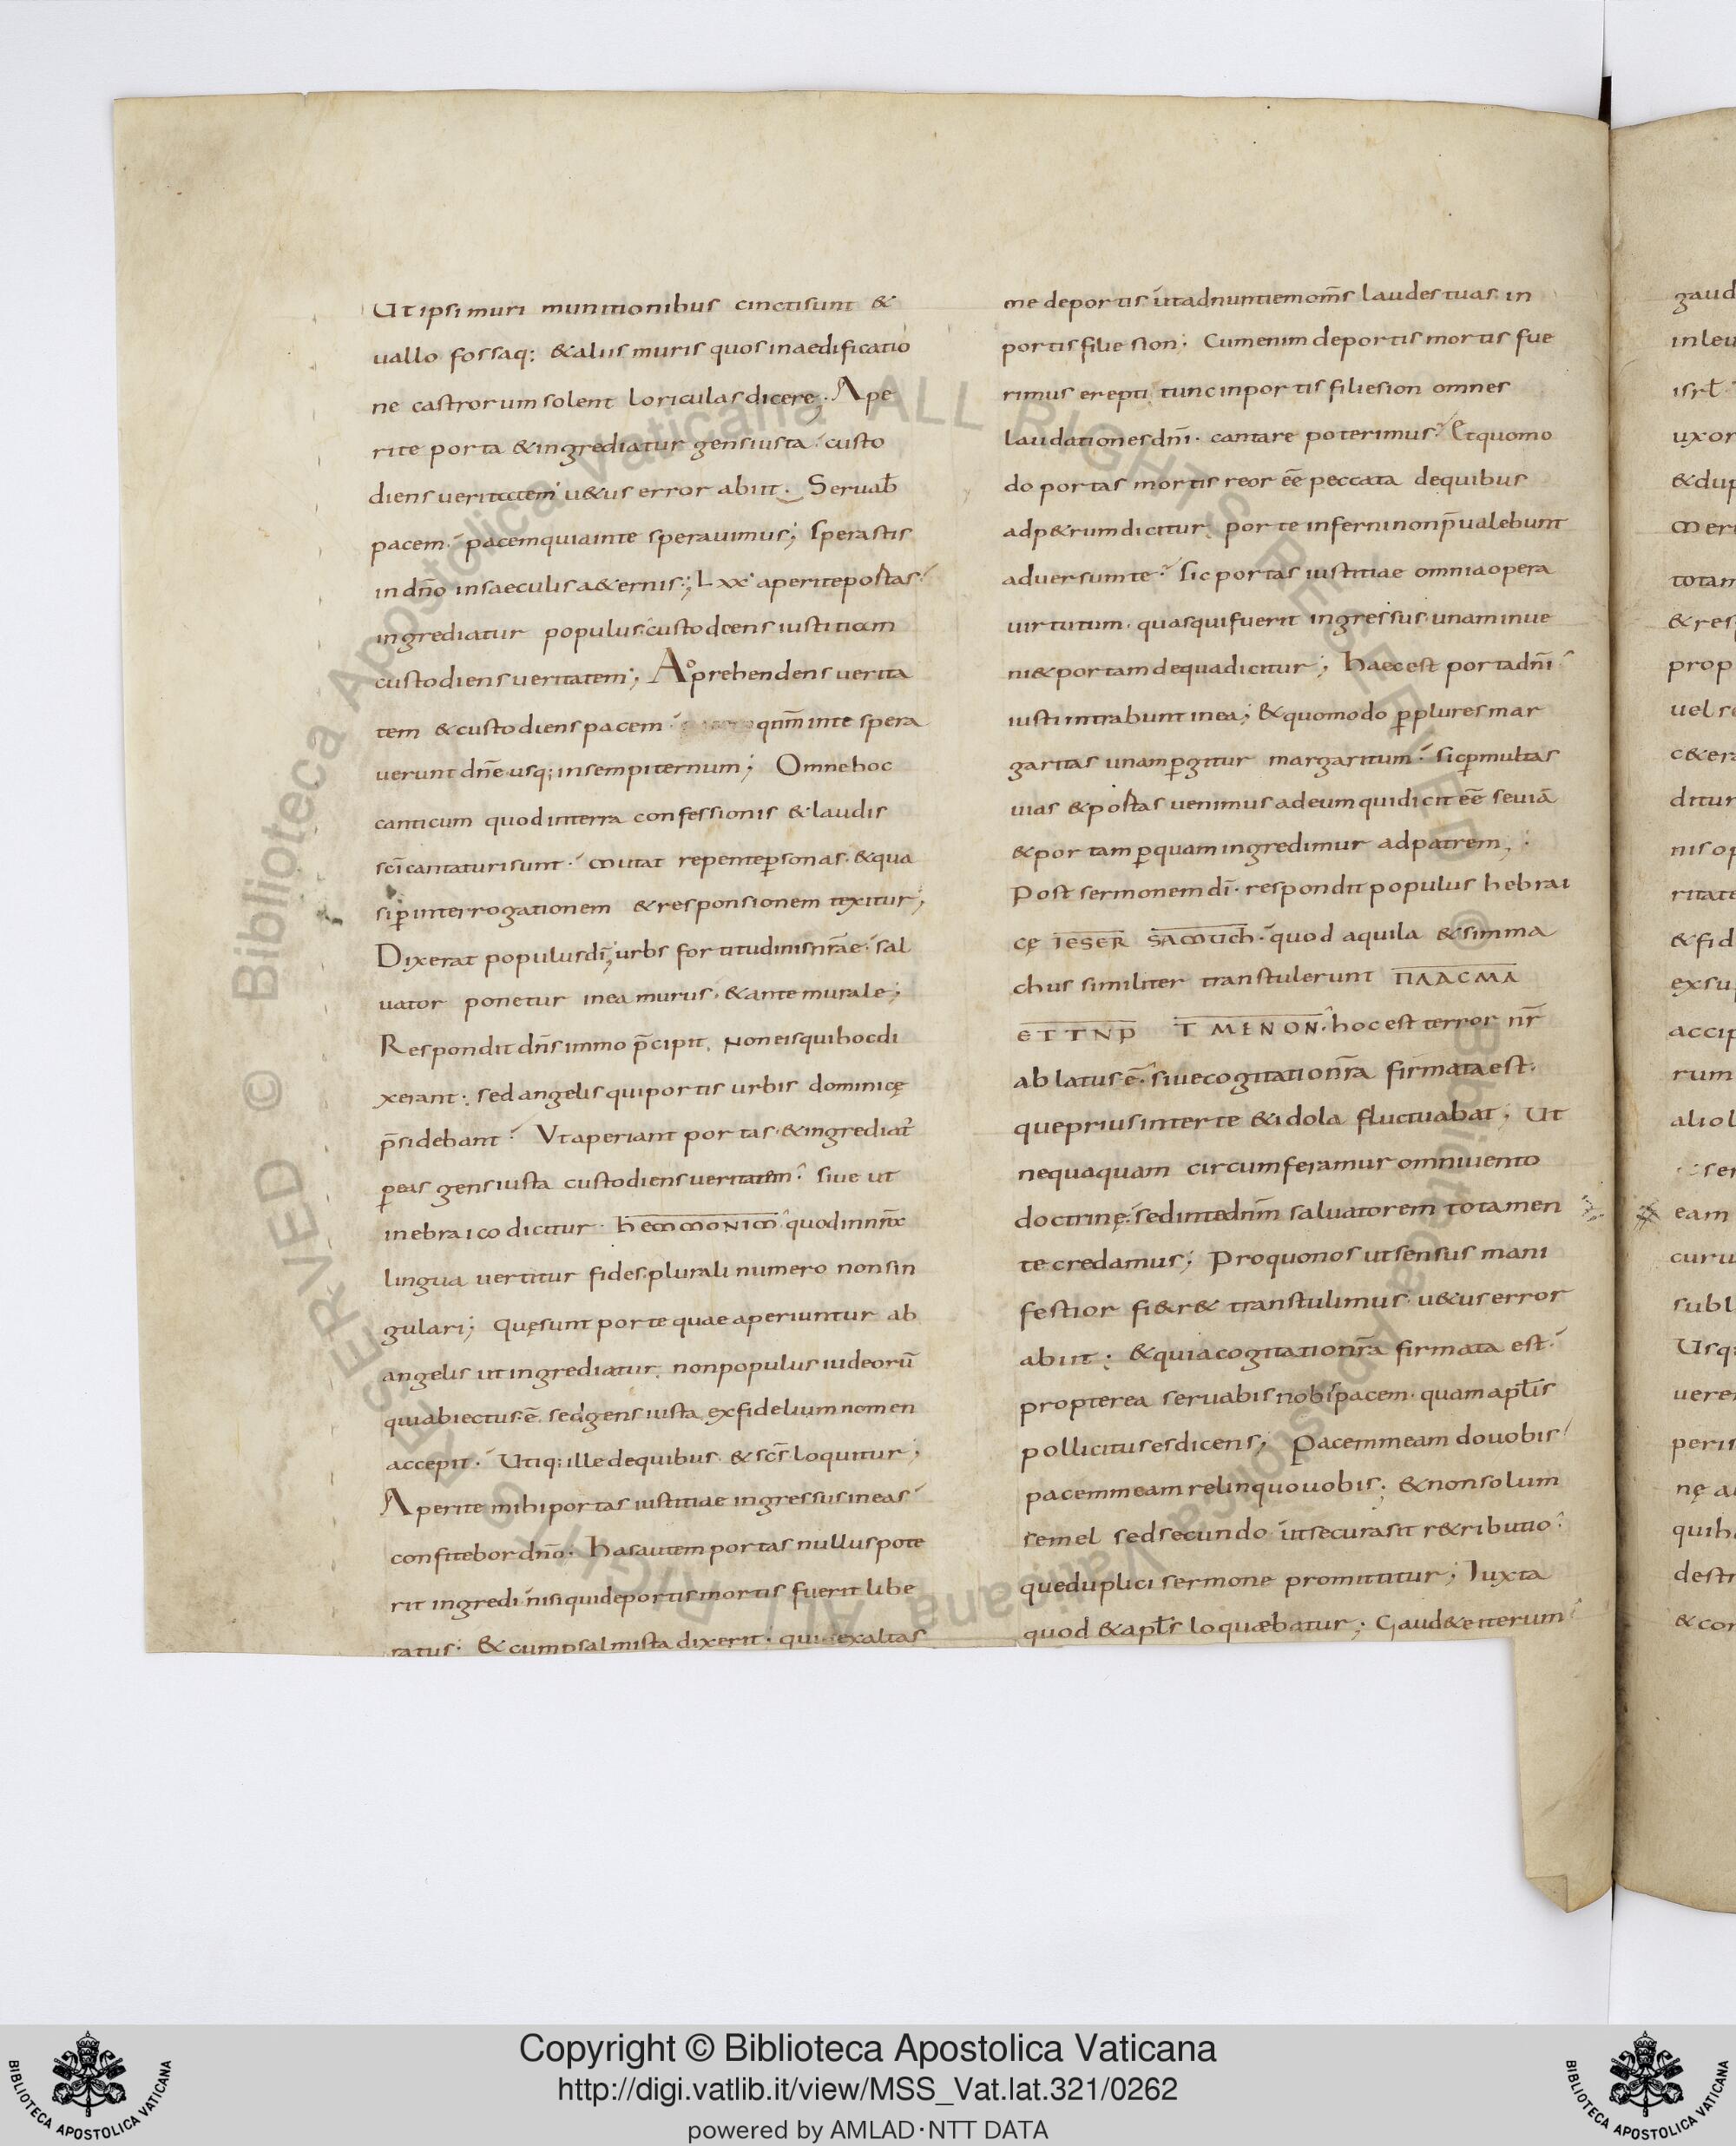 Ut ipsi muri munitionibus cinctisunt &
uallo fossaq; &aliis muris quosinaedificatio
ne castrorum solent loriculas dicere; Ape
rite porta &ingrediatur gensiusta custo
diens ueritatem u&us error abiit. Seruab̄
pacem pacemquiainte sperauimus; Sperastis
in dn̄o insaeculis a&ernis; Lxx aperiteportas
ingrediatur populus custodiens iustitiam
custodiens ueritatem; Apprehendens uerita
tem &custodiens pacem qnm̄ inte spera
uerunt dn̄e usq; insempiternum; Omnehoc
canticum quodinterra confessionis &laudis
sc̄i cantaturisunt. mutat repentep̱sonas &qua
si p̱interrogationem &responsionem texitur;
Dixerat populusdī; urbs fortitudinisnr̄ae sal
uator ponetur inea murus &antemurale;
Respondit dn̄s immo p̄cipit, Noneisquihocdi
xerant; sedangelis quiportis urbis dominicę
p̄sidebant Vtaperiant portas &ingrediat᷑
p̱eas gensiusta custodiensueritatem siue ut
inebraico dicitur hemmonim quodinnr̄ax
lingua uertitur fides plurali numero nonsin
gulari; Quęsunt porte quae aperiuntur ab
angelis utingrediatur, nonpopulus iudeorū
quiabiectus ē. sedgens iusta exfidelium nomen
accepit. Utiq; ille dequibus &sc̄s loquitur;
Aperite mihi portas iustitiae ingressusineas
confitebor dn̄o; hasautem portas nulluspote
rit ingredi nisiquideportismortis fuerit libe
ratus; &cumpsalmista dixerit qui exaltas
me deportis utadnuntiemom̄s laudestuas in
portisfilie sion; Cumenim deportis mortis fue
rimus erepti tuncinportis filiesion omnes
laudationesdn̄i cantare poterimus Etquomo
do portas mortis reor ēē peccata dequibus
adp&rumdicitur porte inferninonp̄ualebunt
aduersumte Sic portas iustitiae omniaopera
uirtutum quasquifuerit ingressus unaminue
ni&portamdequadicitur; haec est portadn̄i
iustiintrabuntinea; &quomodo p̱pluresmar
garitas unamp̱gitur margaritum sicp̱multas
uias &portas uenimus adeumquidicit ēē seuiā
&portam p̱quamingredimur adpatrem;
Post sermonemdī respondit populus hebrai
cę IESER SAMUCh quod aquila &simma
chus similiter transtulerunt ΠΛΑCΜΑ
ETTNP T MENON hocest terror nr̄
ablatus ē siuecogitationr̄a firmataest.
quepriusinterte &idola fluctuabat; Ut
nequaquam circumferamur omniuento
doctrinę sedintednm̄ saluatorem totamen
te credamus; Proquonos utsensus mani
festior fi&r& transtulimus u&us error
abiit; &quiacogitationr̄a firmata est
propterea seruabis nobispacem quamaptl̄is
pollicitusesdicens; Pacemmeam douobis
pacemmeamrelinquouobis; &nonsolum
semel sedsecundo utsecurasit r&ributio
queduplici sermone promittitur; Iuxta
quod &aptl̄s loquebatur; Gaud&eiterum
gaud
inleu
isrl̄
uxor
&dup
meri
totam
&resp
prop
uel se
c&era
ditur
nisop
ritate
&fid
exsup
accip
rum
aliol
ser
eam
curu
subl
Usq;
uere
peris
nę a
quiha
destr
&con
© Biblioteca Apostolica Vaticana ALL RIGHTS RESERVED
© Biblioteca Apostolica Vaticana ALL RIGHTS RESERVED
BIBLIOTECA APOSTOLICA VATICANA
Copyright © Biblioteca Apostolica Vaticana
http://digi.vatlib.it/view/MSS_Vat.lat.321/0262
powered by AMLAD·NTT DATA
BIBLIOTECA APOSTOLICA VATICANA